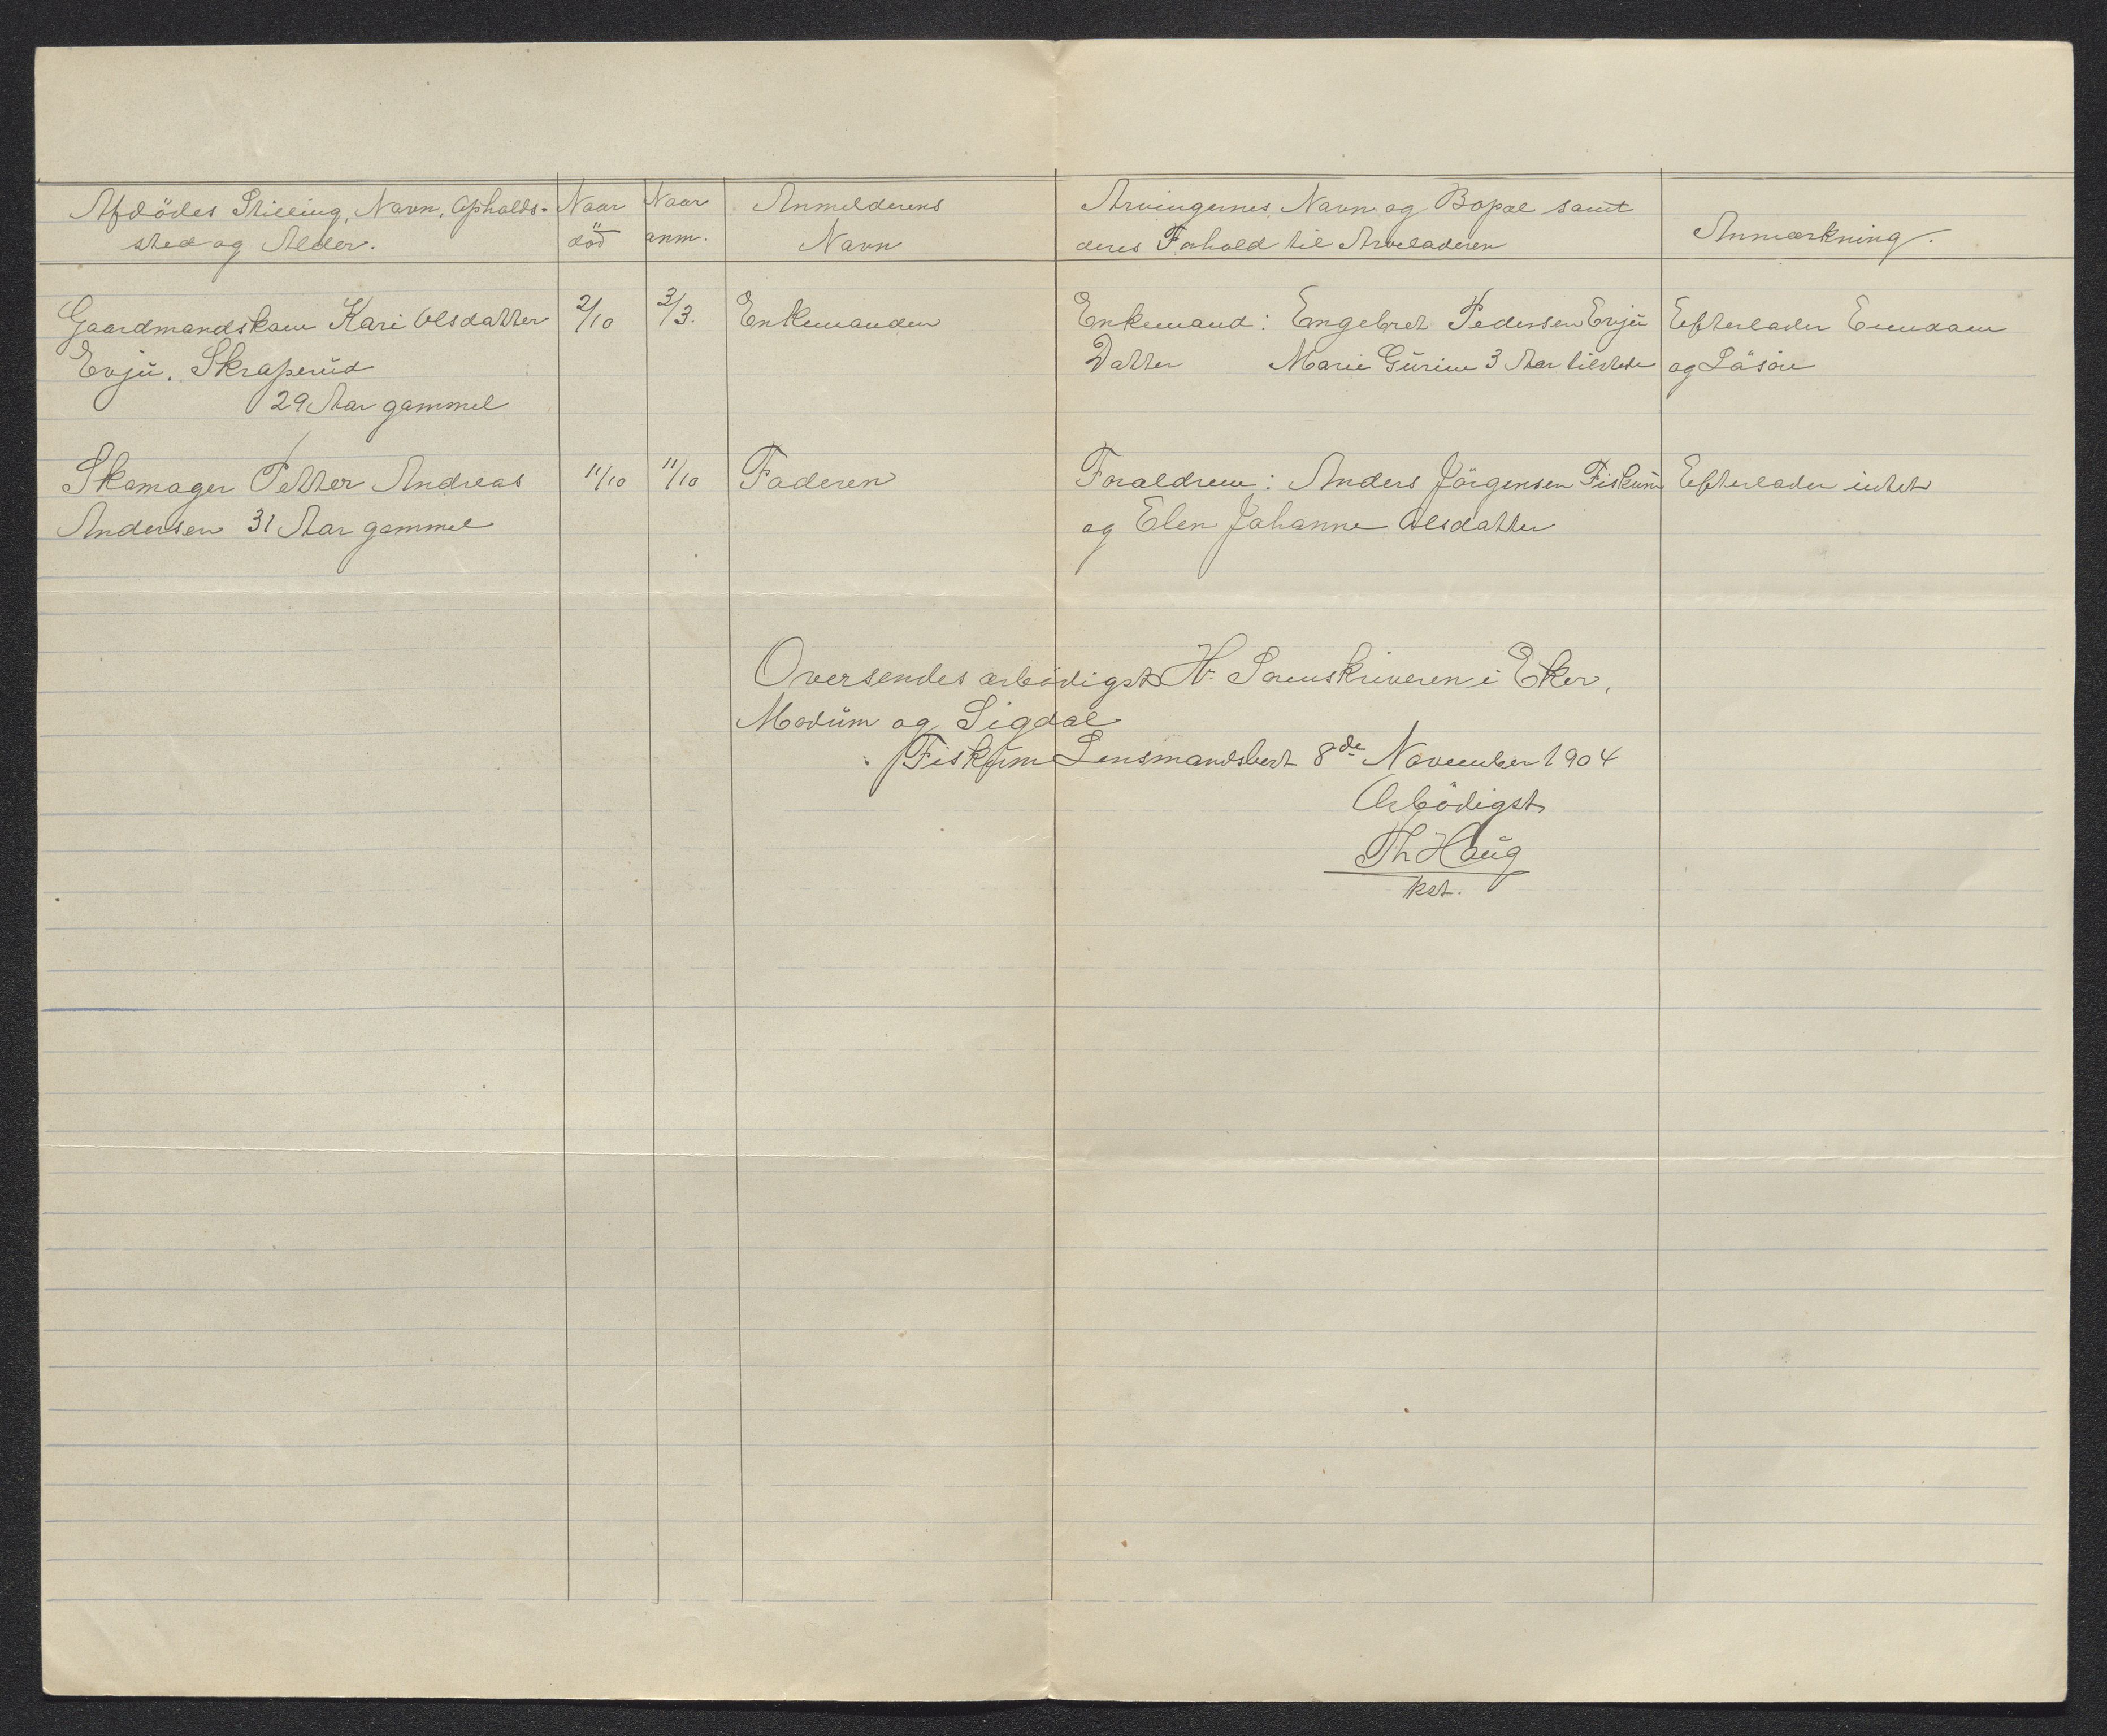 Afdödes Stilling, Navn, Opholds-
sted og Alder.
Naar
död
Naar
anm.
Anmelderens
Navn
Arvingernes Navn og Bopæl samt
deres Forhold til Arveladeren
Anmærkning.
Gaardmandskone Kari Olsdatter
Evju. Skraperud
29 Aar gammel
2/10
3/3.
Enkemanden
Enkemand: Engebret Pedersen Evju
Datter Marie Gurine 3 Aar tilstede
Efterlader Eiendom
og Lösöre
Skomager Petter Andreas
Andersen 31 Aar gammel
11/10
11/10
Faderen
Foræeldrene: Anders Jörgensen Fiskum
og Elen Johanne Olsdatter
Efterlader intet
Oversendes ærbödigst Hr. Sorenskriveren i Eker,
Modum og Sigdal
Fiskum Lensmandsbest 8de November 1904
Ærbödigst
Th Haug
kst.